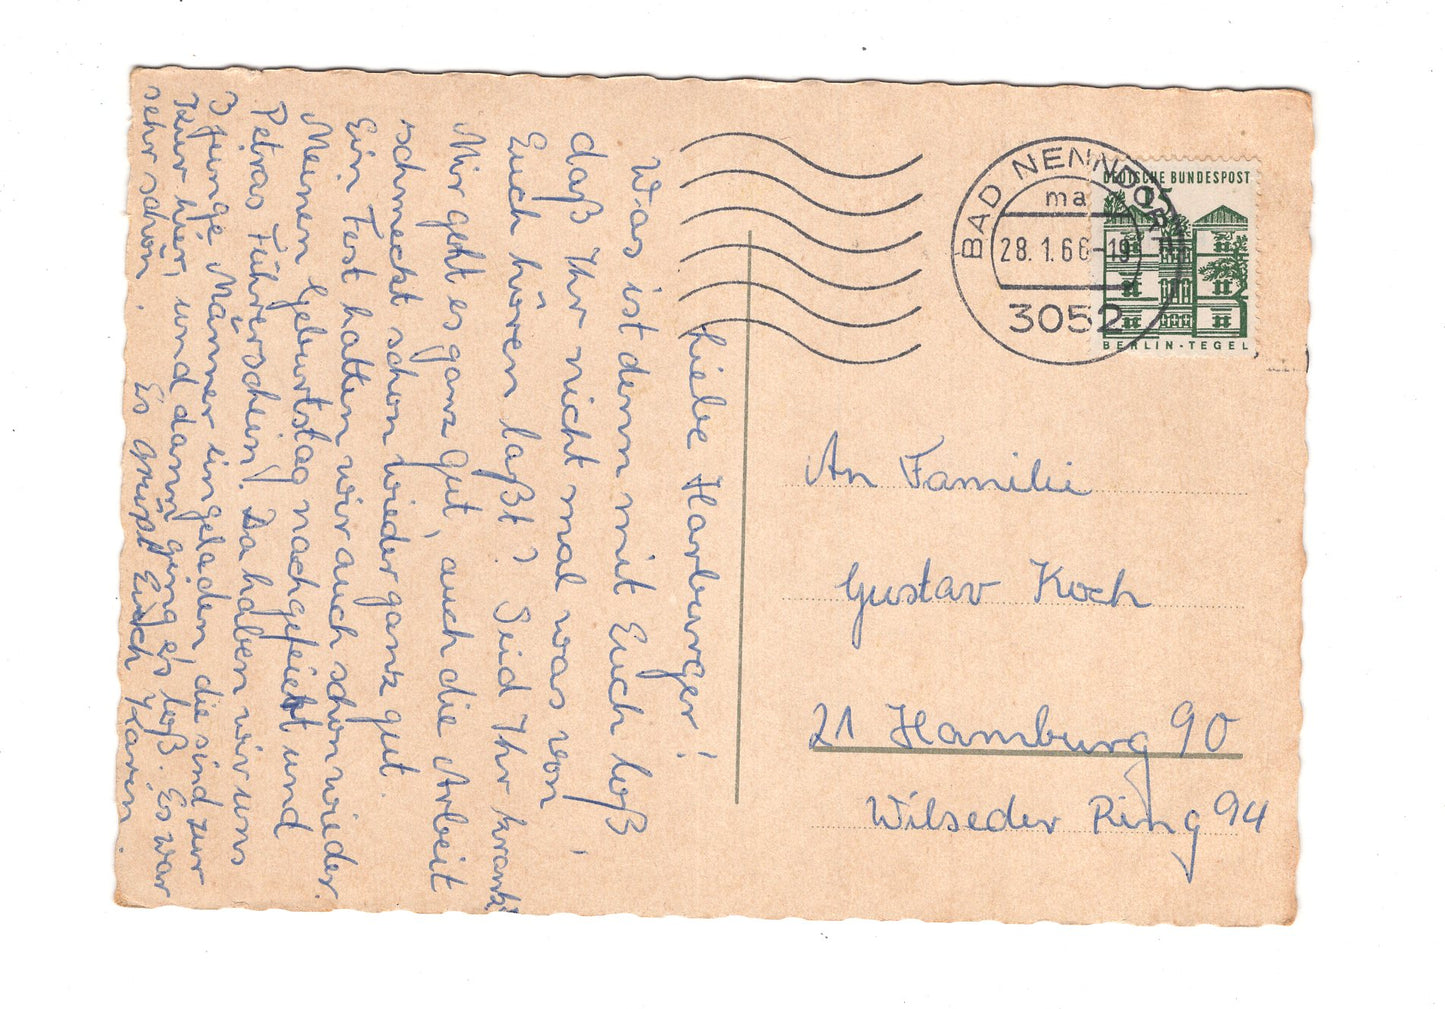 Liebe Harburger!
Was ist denn mit Euch loß
daß Ihr nicht mal was von
Euch hören laßt? Seid Ihr krank?
Mir geht es ganz gut, auch die Arbeit
schmeckt schon wieder ganz gut.
Ein Fest hatten wir auch schon wieder.
Meinen Geburtstag nachgefeiert und
Petras Führerschein! Da haben wir uns
3 junge Männer eingeladen, die sind zur
Kur hier, und dann ging es loß. Es war
sehr schön. Es grüßt Euch Karin.
BAD NENNDORF
ma
28.1.66-19
3052
DEUTSCHE BUNDESPOST
15
BERLIN-TEGEL
An Familie
Gustav Koch
21 Hamburg 90
Wilseder Ring 94